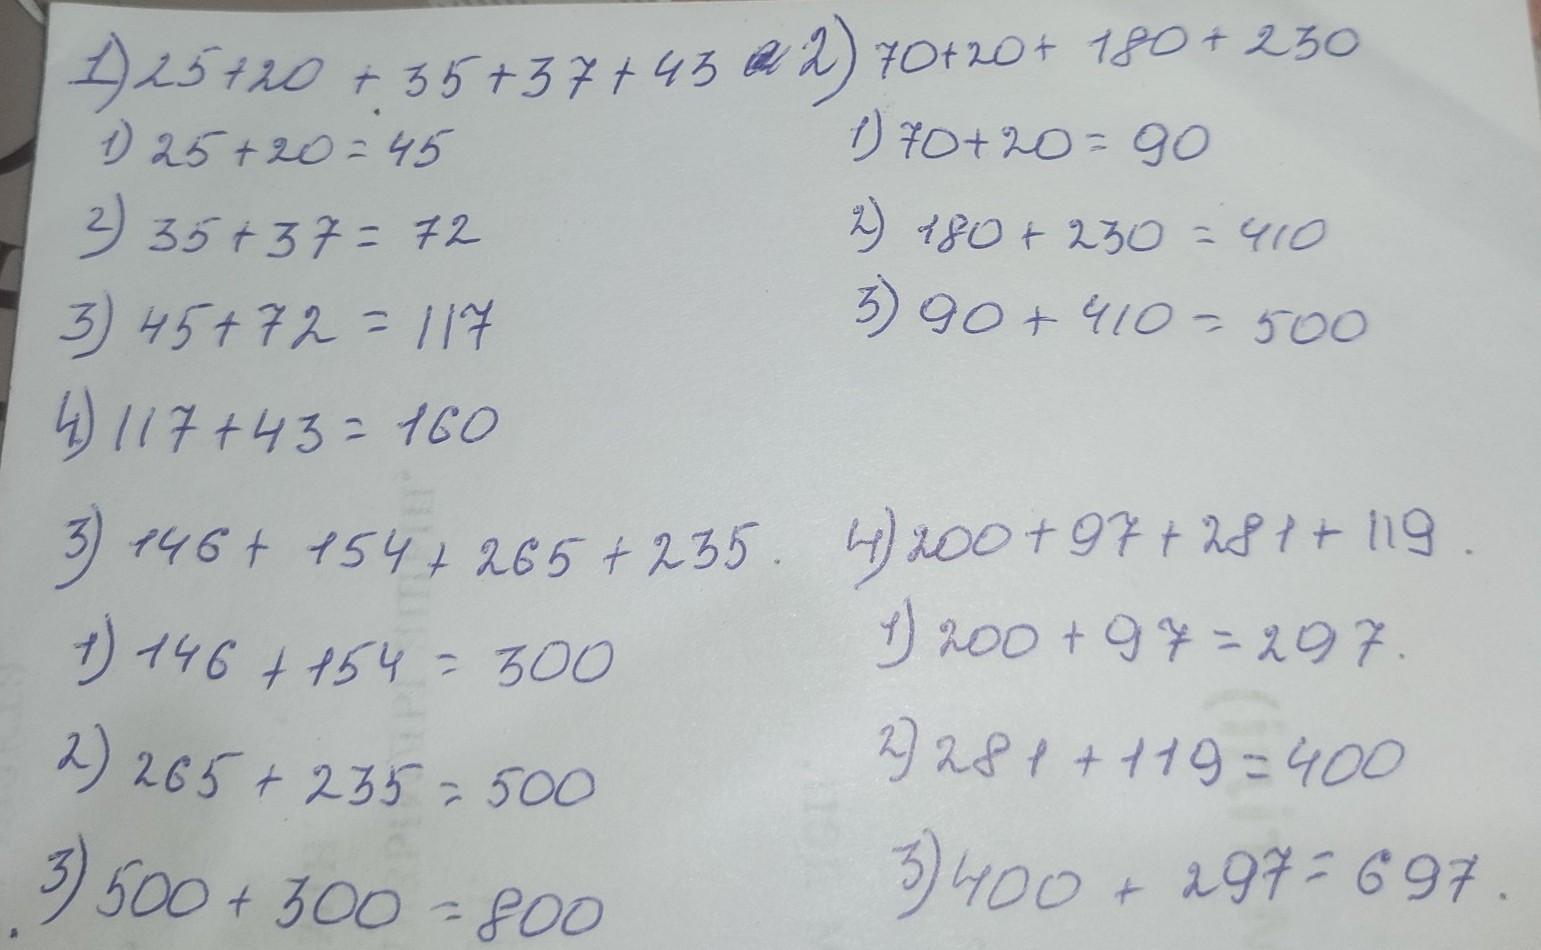 1) 25+20 + 35+37+43
1) 25+20=45
2) 35+37= 72
3) 45+72 = 117
4) 117+43= 160
2) 70+20+ 180+230
1) 70+20= 90
2) 180+230 = 410
3) 90+410= 500
3) 146+ 154+ 265+235.
1) 146+154= 300
2) 265+235=500
3) 500+300=800
4) 200+97+281+119.
1) 200+97=297.
2) 281+119=400
3) 400 + 297=697.